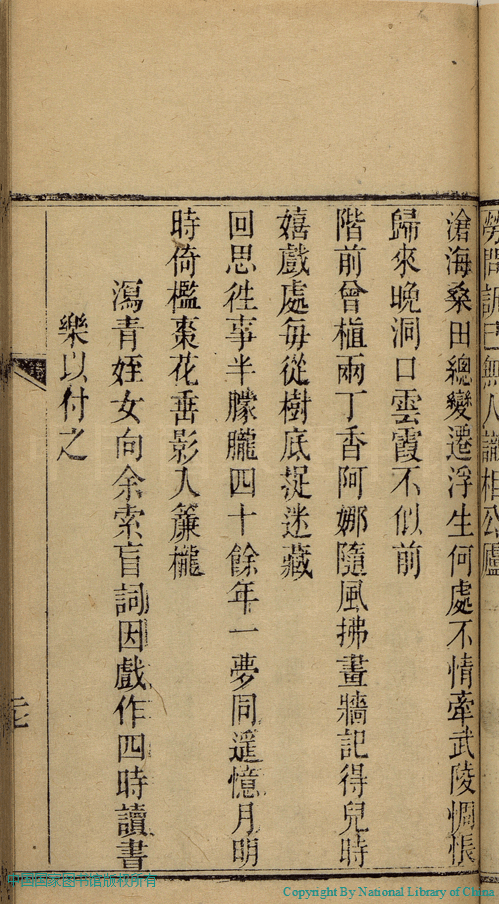 勞問訊已無人識相公廬
滄海桑田總變遷浮生何處不情牽武陵惆悵
歸來晚洞口雲霞不似前
階前曾植兩丁香阿娜隨風拂畫牆記得兒時
嬉戲處每從樹底捉迷藏
回思徃事半朦朧四十餘年一夢同遥憶月明
時倚檻棗花垂影入簾櫳
瀉青姪女向余索盲詞因戲作四時讀書
樂以付之
中国国家图书馆版权所有
Copyright By National Library of China